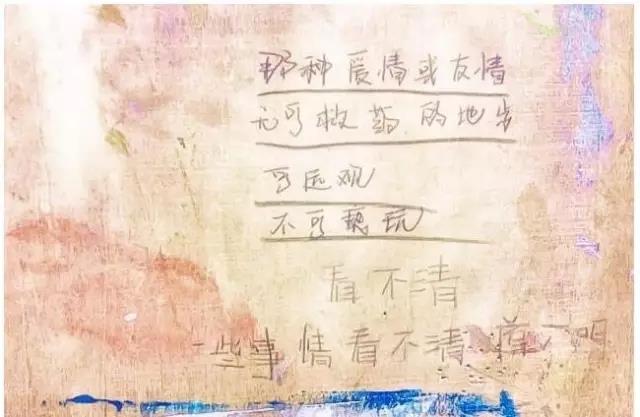 那种爱情或友情
无可救药的地步
可远观
不可亵玩
看不清
一些事情看不清